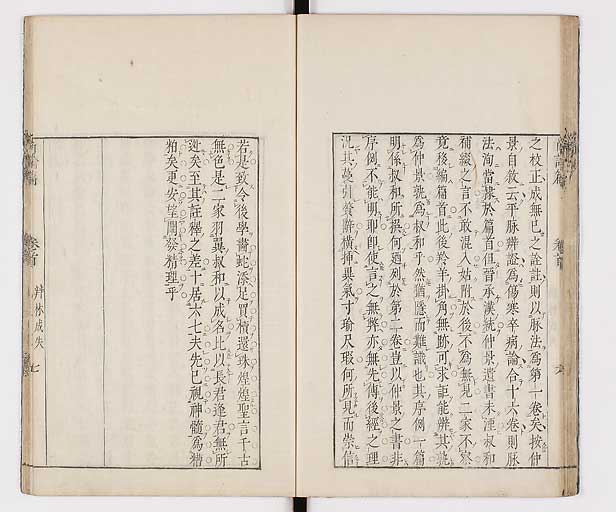 之校正成無已之詮註則以脉法爲第一卷矣按仲
景自敘云平脉辨證爲傷寒卒病論合十六卷則脉
法洵當隸於篇首但晉承漢統仲景遺書未湮叔和
補綴之言不敢混入姑附於後不爲無見二家不察
竟後編篇首此後羚羊掛角無跡可求詎能辨其孰
爲仲景孰爲叔和乎然猶隱而難識也其序例一篇
明係叔和所撰何廼列於第二卷豈以仲景之書非
序例不能明耶即使言之無弊亦無先傳後經之理
況其蔓引贅辭橫插異氣寸瑜尺瑕何所見而崇信
若是致令後學畵蛇添足買櫝還珠煌煌聖言千古
無色是二家羽翼叔和以成名比以長君逢君無所
逃矣至其註釋之差十居六七夫先巳視神髓爲糟
粕矣更安望闡發精理乎
卷首
辨林成失
七